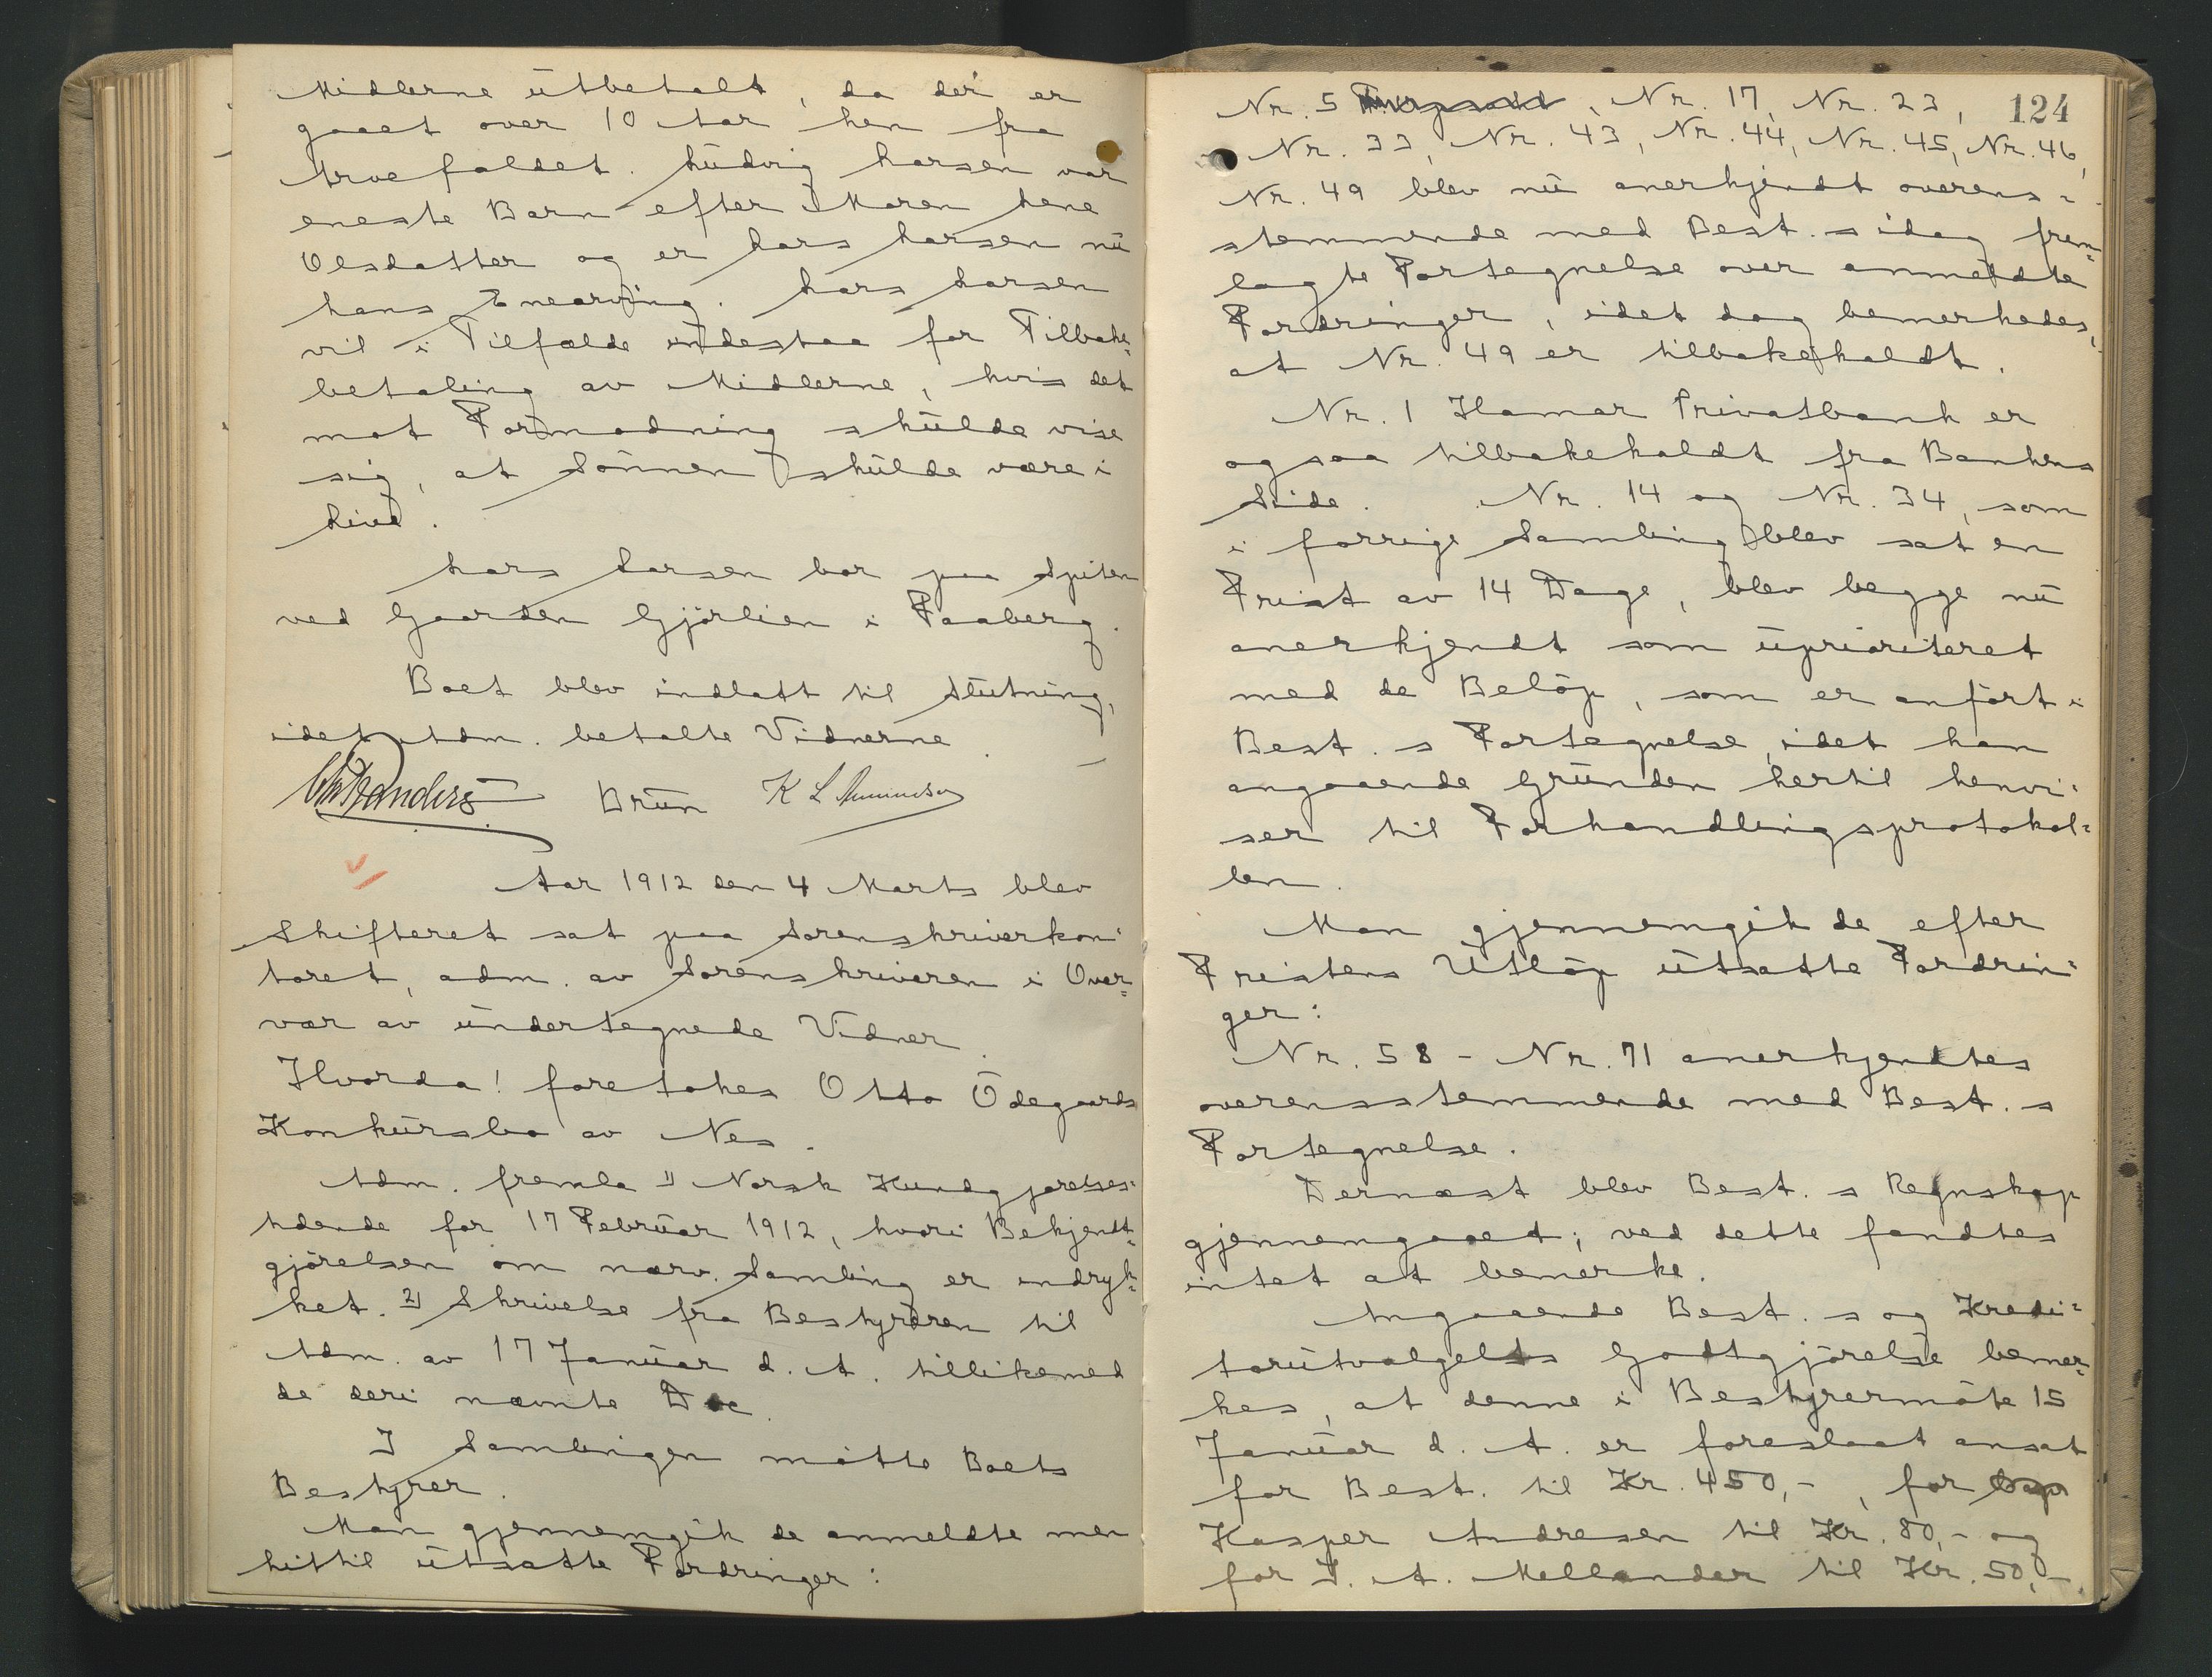 Midlerne utbetalt, da der er
gaaet over 10 Aar hen fra
Arvefaldet. Ludvig Larsen var
eneste Barn efter Maren Lene
Olsdatter og er Lars Larsen nu
hans Enearving. Lars Larsen
vil i Tilfælde indestaa for Tilbake-
betaling av Midlerne, hvis det
mot Formodning skulde vise
sig, at Sønnen skulde være i
Live.
Lars Larsen bor paa Spiten
ved Gaarden Gjørlien i Faaberg.
Boet blev indlatt til Slutning,
idet Adm. betalte Vidnerne.
Brun K L Amundsen
Aar 1912 den 4 Marts blev
Skifteret sat paa Sorenskriverkon-
toret, adm. av Sorenskriveren i Over-
vær av undertegnede Vidner.
Hvorda! foretokes Otto Ødegaards
Konkursbo av Nes.
Adm. fremla 1) Norsk Kundgjørelses-
tidende for 17 Februar 1912, hvori Bekjendt-
gjørelsen om nærv. Samling er indryk-
ket. 2) Skrivelse fra Bestyreren til
Adm. av 17 Januar d. A. tillikemed
de deri nævnte Doc.
I Samlingen møtte Boets
Bestyrer.
Man gjennemgik de anmeldte men
hittil utsatte Fordringer:
124
Nr. 5, Nr. 17, Nr. 23,
Nr. 33, Nr. 43, Nr. 44, Nr. 45, Nr. 46,
Nr. 49 blev nu anerkjendt overens-
stemmende med Best. s idag frem-
lagte Fortegnelse over anmeldte
Fordringer, idet dog bemerkedes,
at Nr. 49 er tilbakeholdt.
Nr. 1 Hamar Privatbank er
ogsaa tilbakeholdt fra Bankens
Side. Nr. 14 og Nr. 34, som
i forrige Samling blev sat en
Frist av 14 Dage, blev begge nu
anerkjendt som uprioriteret
med de Beløp, som er anført i
Best. s Fortegnelse, idet han
angaaende Grunden hertil henvi-
ser til Forhandlingsprotokol-
len.
Man gjennemgik de efter
Fristens Utløp utsatte Fordrin-
ger:
Nr. 58 - Nr. 71 anerkjendtes
overensstemmende med Best. s
Fortegnelse.
Dernæst blev Best. s Regnskap
gjennemgaaet; ved dette fandtes
intet at bemerke.
Angaaende Best. s og Kredi-
torutvalgets Godtgjørelse bemer-
kes, at denne i Bestyrermøte 15
Januar d. A. er foreslaat ansat
for Best. til Kr. 450,-, for
Kasper Andresen til Kr. 80,- og
for J. A. Mellander til Kr. 50,-.